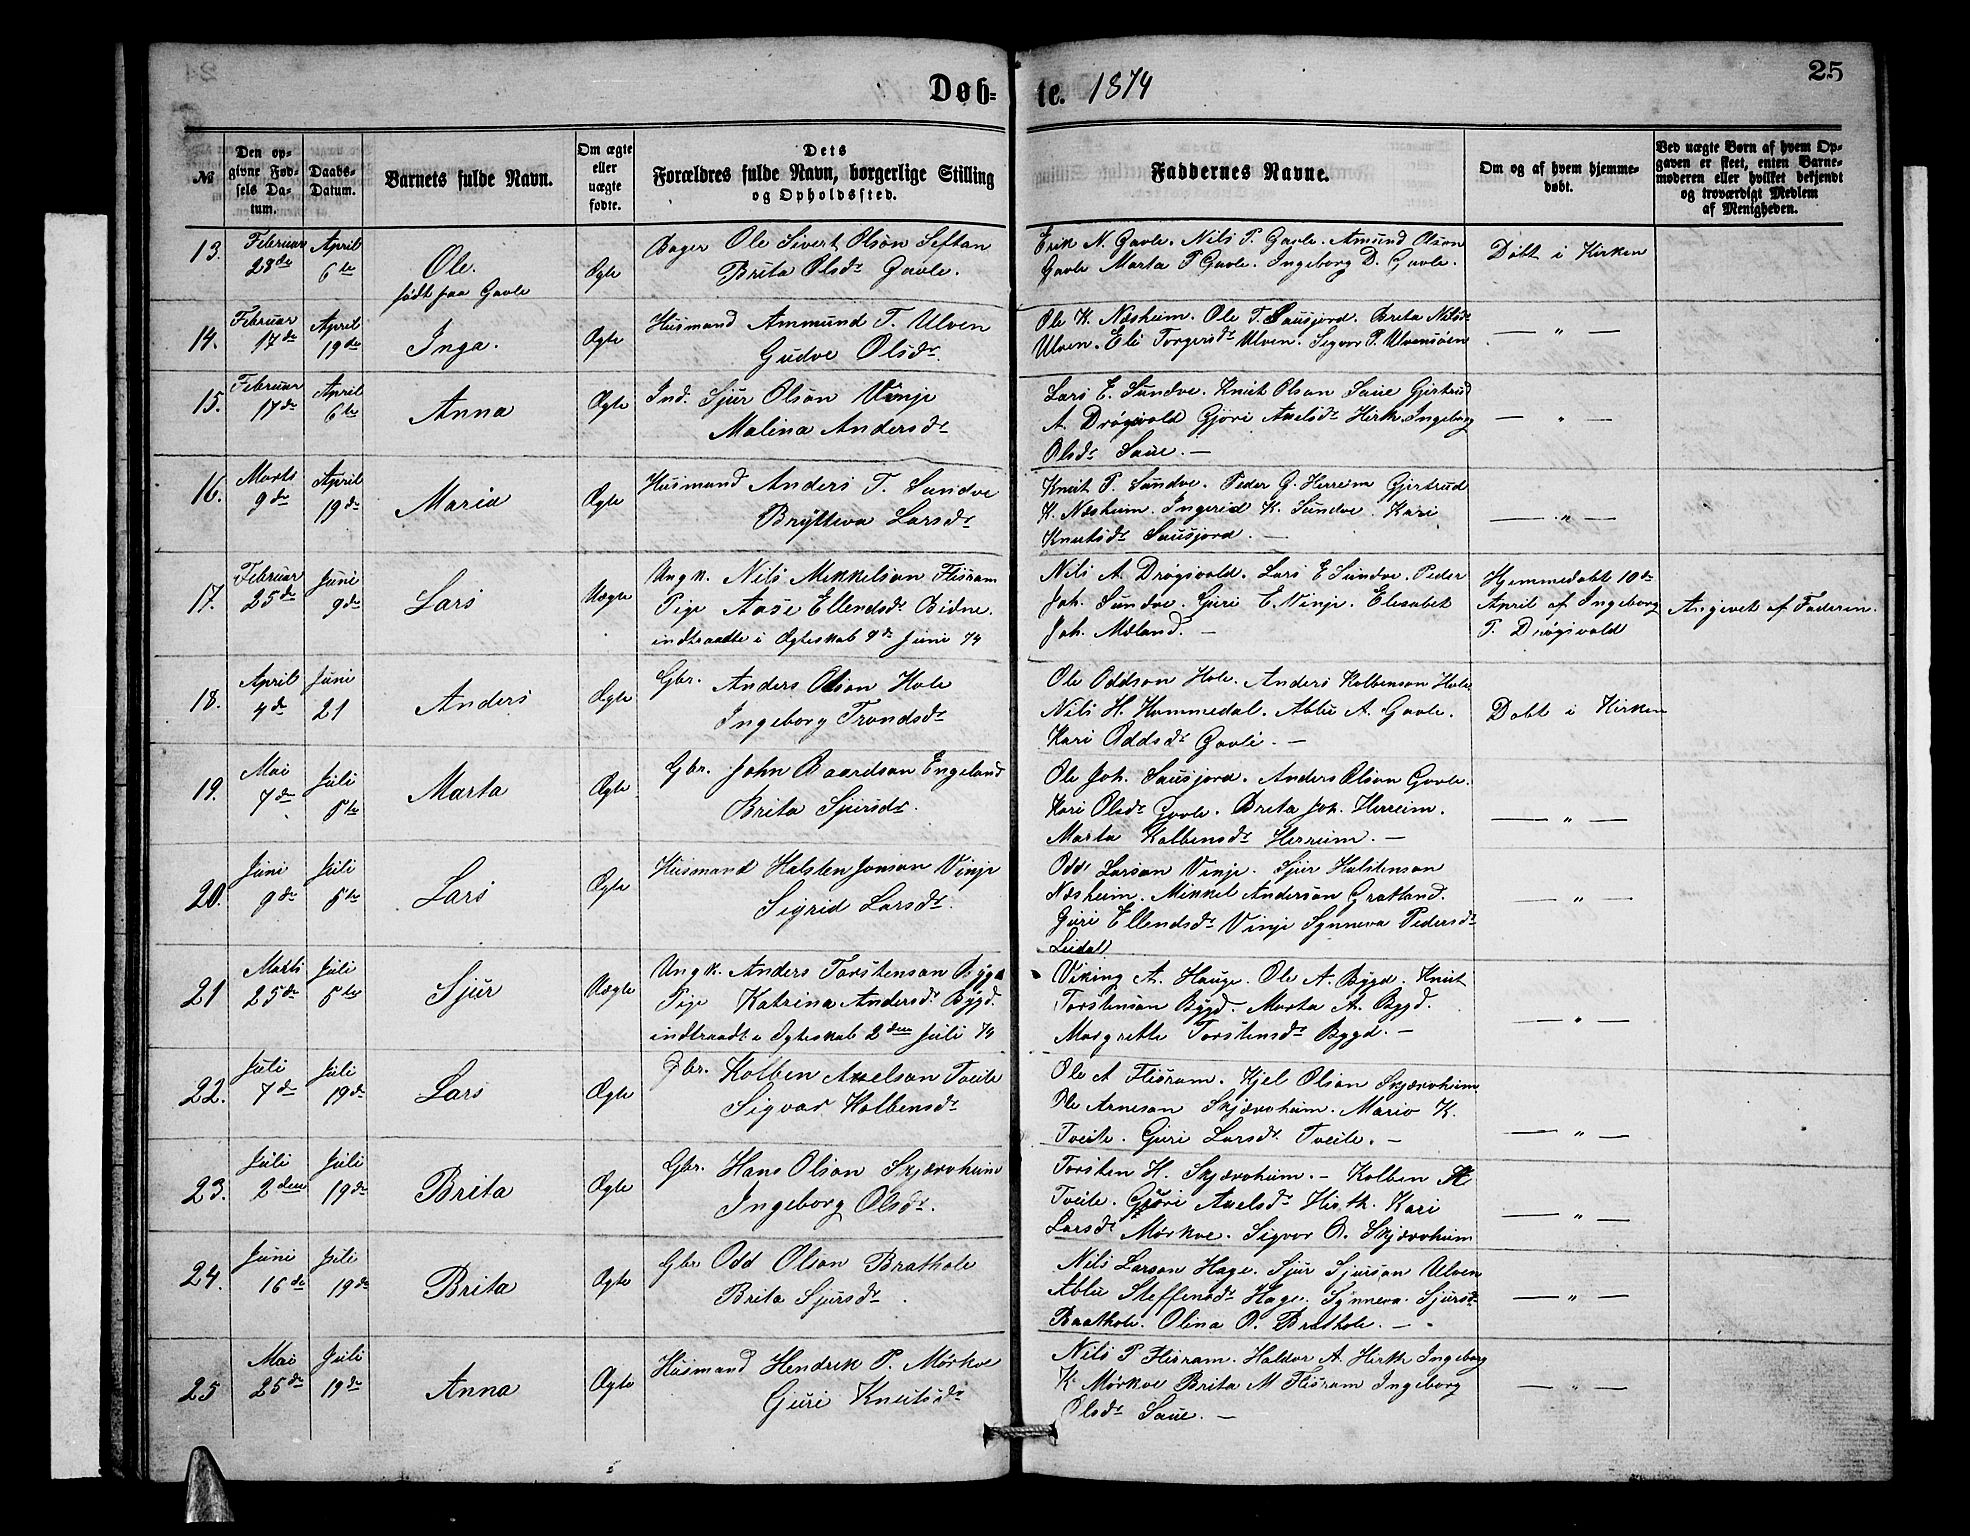 Døb-te. 1874
25
№
Den opgivne Fødsels Datum.
Daabs-Datum.
Barnets fulde Navn.
Om ægte eller uægte fødte.
Dets Forældres fulde Navn, borgerlige Stilling og Opholdssted.
Faddernes Navne.
Om og af hvem hjemmedøbt.
Ved uægte Børn af hvem Opgaven er skeet, enten Barnemoderen eller hvilket bekjendt og troværdigt Medlem af Menigheden.
13. Februar 28de April 6te Ole. født paa Gavle Ægte
Bager Ole Sivert Olson Seftan
Brita Olsdr Gavle.
Erik N. Gavle. Nils P. Gavle. Amund Olson
Gavle Marta P Gavle. Ingeborg D. Gavle.
Døbt i Kirken
14. Februar 17de April 19de Inga. Ægte
Husmand Ammund T. Ulven
Gudve Olsdr.
Ole K. Næsheim. Ole T. Sausjord. Brita Nilsdr
Ulven. Eli Torgersdr Ulven. Sigvor P. Ulvensøen
— " —
15. Februar 17de April 6te Anna Ægte
Ind. Sjur Olson Vinje
Malena Andersdr
Lars E. Sundve. Knut Olson Saue Gjertrud
A. Drøgsvold Gjøri Axelsdr Hirth. Ingeborg
Olsdr Saue. —
— " —
16. Marts 9de April 19de Maria Ægte
Husmand Anders T. Sundve
Brytteva Larsdr
Knut P. Sundve. Peder G. Herreim Gjertrud
K. Næsheim. Ingerid K. Sundve. Kari
Knutsdr Sausjord. —
— " —
17. Februar 25de Juni 9de Lars Uægte
Ungk. Nils Mikkelson Flisram
Pige Aase Ellendsdr Bidne.
indtraadte i Ægteskab 9de Juni 74
Nils A. Drøgsvold. Lars E Sundve. Peder
Joh. Sundve. Guri E. Vinje. Elisabet
Joh. Mæland. —
Hjemmedøbt 10de
April af Ingeborg
P. Drøgsvold
Angivet af Faderen.
18. April 4de Juni 21 Anders Ægte
Gbr. Anders Olson Hole
Ingeborg Trondsdr
Ole Oddson Hole. Anders Kolbenson Hole
Nils H. Hommedal. Ablu A. Gavle.
Kari Oddsdr Gavle. —
Døbt i Kirken
19. Mai 7de Juli 5te Marta Ægte
Gbr. John Baardson Engeland
Brita Sjursdr.
Ole Joh. Sausjord. Anders Olson Gavle.
Kari Olsdr Gavle. Brita Joh. Herreim.
Marta Kolbensdr Herreim. —
— " —
20. Juni 9de Juli 5te Lars Ægte
Husmand Halsten Jonson Vinje
Sigrid Larsdr.
Odd Larson Vinje. Sjur Halstenson
Næsheim. Mikkel Anderson Grotland.
Guri Ellendsdr Vinje Synneva Pedersdr
Ludal
— " —
21 Marts 25de Juli 5te Sjur Uægte
Ungk. Anders Torstenson Bygd
Pige Katrina Andersdr Bygd.
indtraadt i Ægteskab 2den Juli 74
Viking A. Hauge. Ole A. Bygd. Knut
Torstenson Bygd. Marta A. Bygd.
Margrethe Torstensdr Bygd. —
— " —
22. Juli 7de Juli 19de Lars Ægte
Gbr. Kolben Axelson Tveite
Sigvor Kolbensdr
Ole A Flisram. Kjel Olson Skjærvheim
Ole Arneson Skjærvheim. Mario K.
Tveite. Guri Larsdr Tveite. —
— " —
23. Juli 2den Juli 19de Brita Ægte
Gbr. Hans Olson Skjærvheim
Ingeborg Olsdr.
Torsten H. Skjærvheim. — Kolben
Tveite. Gjøri Axelsdr Hirth. Kari
Larsdr Mørkve. Sigvor O. Skjærvheim
— " —
24. Juni 16de Juli 19de Brita Ægte
Gbr Odd Olson Brathole
Brita Sjursdr.
Nils Larson Hage. Sjur Sjurson Ulven
Ablu Steffensdr Hage. Synneva Sjursdr
Baathole. Olina O. Brathole. —
— " —
25 Mai 25de Juli 19de Anna Ægte
Husmand Hendrik P. Mørkve
Guri Knutsdr
Nils P Flisram. Haldor A. Hirth Ingeborg
K Mørkve Brita M Flisram Ingeborg
Olsdr Saue. —
— " —